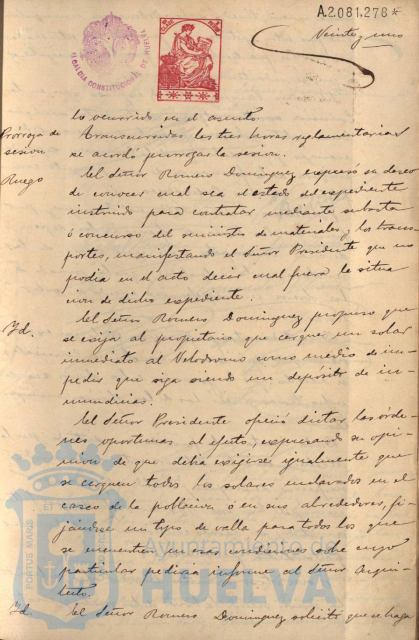 A.2.081,276*
Veinte y uno
ALCALDIA CONSTITUCIONAL DE HUELVA
lo ocurrido en el asunto.
Prórroga de
sesion
Transcurridas las tres horas reglamentarias
se acordó prorrogar la sesion.
Ruego
El Señor Romero Dominguez expresó su deseo
de conocer cual sea el estado del expediente
instruido para contratar mediante subasta
ó concurso del suministro de materiales y los trans-
portes, manifestando el Señor Presidente que no
podia en el acto decir cual fuera la situa-
cion de dicho expediente.
Id.
El Señor Romero Dominguez propuso que
se exija al propietario que cerque un solar
inmediato al Velodromo como medio de im-
pedir que siga siendo un depósito de in-
mundicias.
El Señor Presidente ofreció dictar las órde-
nes oportunas al efecto, expresando su opi-
nion de que debia exijirse igualmente que
se cerquen todos los solares enclavados en el
casco de la poblacion ó en sus alrededores, fi-
jándose un tipo de valla para todos los que
se encuentren en esas condiciones sobre cuyo
particular pediria informe al Señor Arqui-
tecto.
Id.
El Señor Romero Dominguez solicitó que se haga
PORTUS MARIS ET
Ayuntamiento de
HUELVA